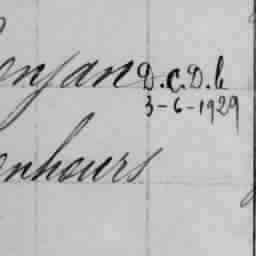 onjan D.C.D. le
3-6-1929
enhours